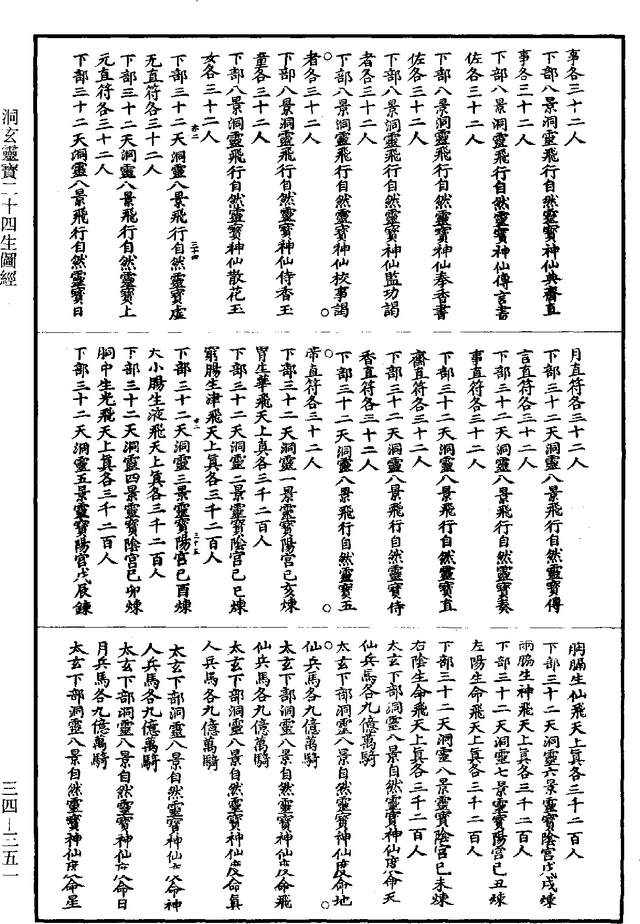 事各三十二人
下部八景洞靈飛行自然靈寶神仙典齋直
事各三十二人
下部八景洞靈飛行自然靈寶神仙傳言書
佐各三十二人
下部八景洞靈飛行自然靈寶神仙奉香書
佐各三十二人
下部八景洞靈飛行自然靈寶神仙監功謁
者各三十二人
下部八景洞靈飛行自然靈寶神仙校事謁
者各三十二人
下部八景洞靈飛行自然靈寶神仙侍香玉
童各三十二人
下部八景洞靈飛行自然靈寶神仙散花玉
女各三十二人
下部三十二天洞靈八景飛行自然靈寶虛
无直符各三十二人
下部三十二天洞靈八景飛行自然靈寶上
元直符各三十二人
下部三十二天洞靈八景飛行自然靈寶日
月直符各三十二人
下部三十二天洞靈八景飛行自然靈寶傳
言直符各三十二人
下部三十二天洞靈八景飛行自然靈寶奏
事直符各三十二人
下部三十二天洞靈八景飛行自然靈寶直
齋直符各三十二人
下部三十二天洞靈八景飛行自然靈寶侍
香直符各三十二人
下部三十二天洞靈八景飛行自然靈寶五
帝直符各三十二人
下部三十二天洞靈一景靈寶陽宮己亥煉
胃生華飛天上真各三千二百人
下部三十二天洞靈二景靈寶陰宮己巳煉
窮腸生津飛天上真各三千二百人
下部三十二天洞靈三景靈寶陽宮己酉煉
大小腸生液飛天上真各三千二百人
下部三十二天洞靈四景靈寶陰宮己卯煉
胴中生光飛天上真各三千二百人
下部三十二天洞靈五景靈寶陽宮戊辰鍊
胸膈生仙飛天上真各三千二百人
下部三十二天洞靈六景靈寶陰宮戊戌煉
兩脇生神飛天上真各三千二百人
下部三十二天洞靈七景靈寶陽宮己丑煉
左陽生命飛天上真各三千二百人
下部三十二天洞靈八景靈寶陰宮己未煉
右陰生命飛天上真各三千二百人
太玄下部洞靈八景自然靈寶神仙度命天
仙兵馬各九億萬騎
太玄下部洞靈八景自然靈寶神仙度命地
仙兵馬各九億萬騎
太玄下部洞靈八景自然靈寶神仙度命飛
仙兵馬各九億萬騎
太玄下部洞靈八景自然靈寶神仙度命真
人兵馬各九億萬騎
太玄下部洞靈八景自然靈寶神仙度命神
人兵馬各九億萬騎
太玄下部洞靈八景自然靈寶神仙度命日
月兵馬各九億萬騎
太玄下部洞靈八景自然靈寶神仙度命星
洞玄靈寶二十四生圖經
三四—三五一